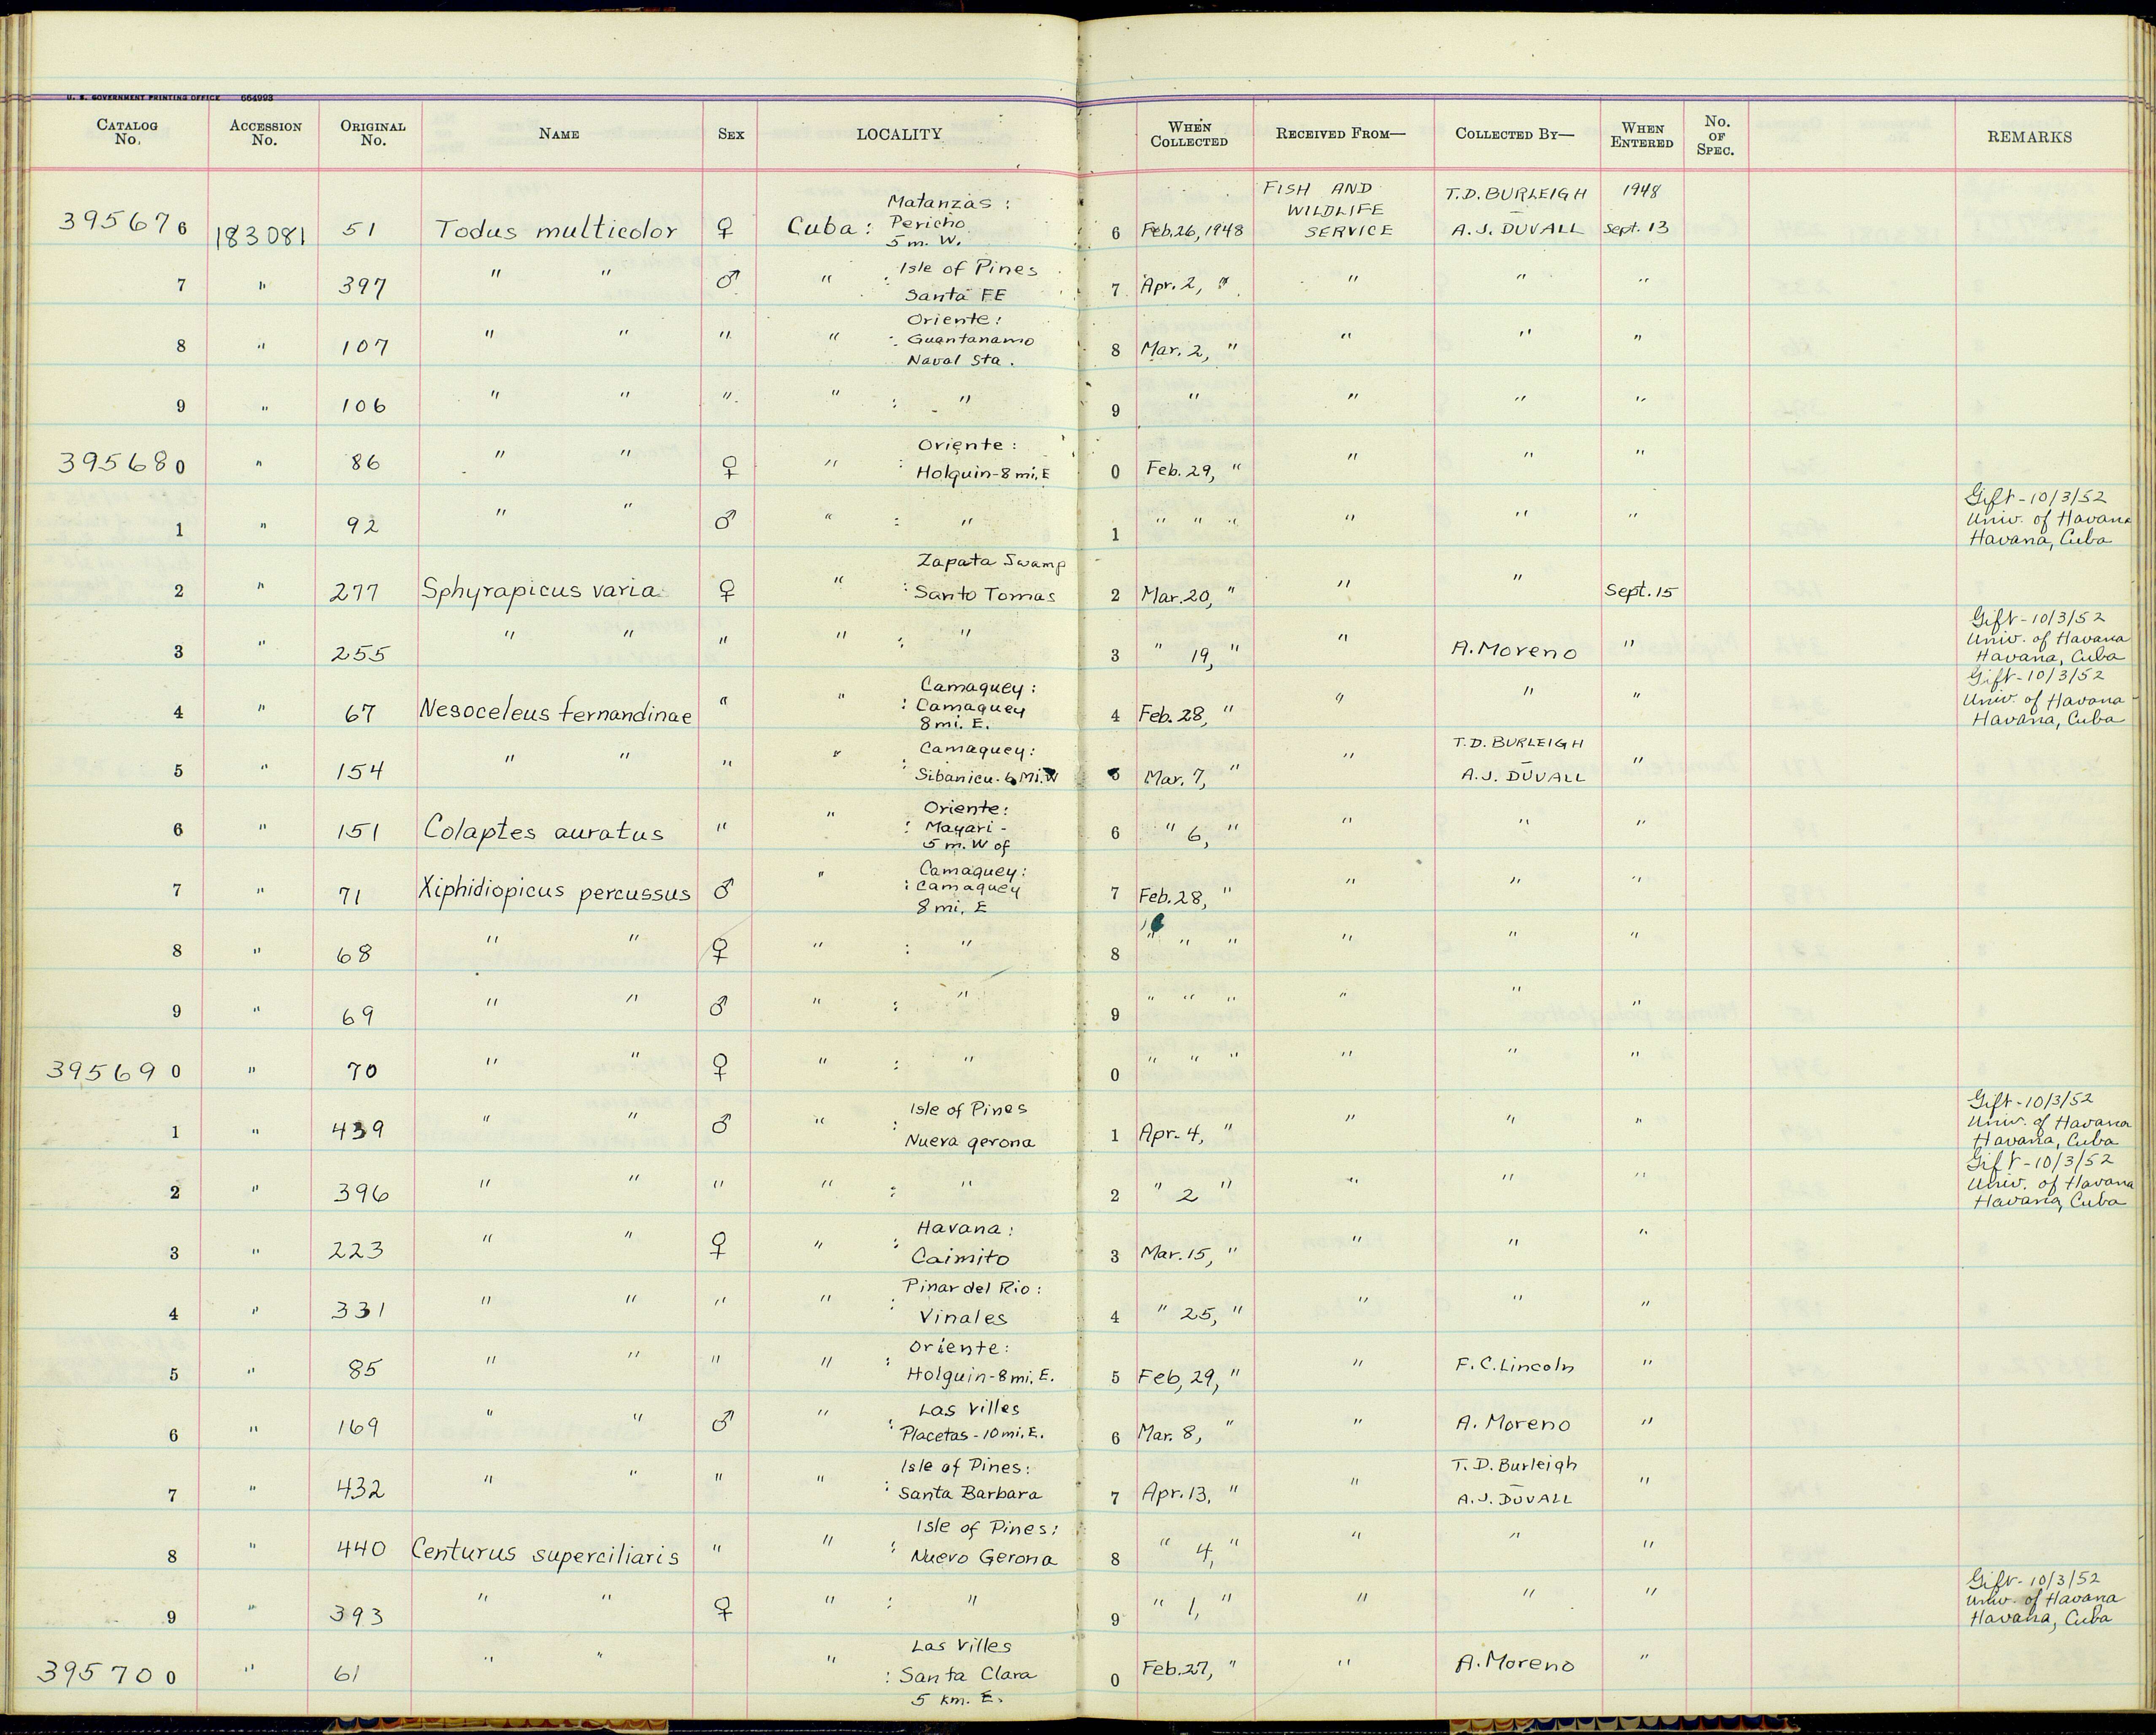 U. S. GOVERNMENT PRINTING OFFICE 664993
CATALOG No. ACCESSION No. ORIGINAL No. NAME SEX LOCALITY WHEN COLLECTED RECEIVED FROM— COLLECTED BY— WHEN ENTERED No. OF SPEC. REMARKS
Matanzas : FISH AND T.D. BURLEIGH 1948
395676 183081 51 Todus multicolor ♀ Cuba : Pericho 6 Feb. 26, 1948 WILDLIFE SERVICE A. J. DUVALL Sept. 13
5 m. W.
Isle of Pines
7 " 397 " " ♂ " : Santa FE 7 Apr. 2, " " " "
Oriente :
8 " 107 " " " " : Guantanamo 8 Mar. 2, " " " "
Naval Sta.
9 " 106 " " " " : " 9 " " " "
Oriente :
395680 " 86 " " ♀ " : Holquin-8 mi. E 0 Feb. 29, " " " "
Gift - 10/3/52
1 " 92 " " ♂ " : " 1 " " " " " " Univ. of Havana
Havana, Cuba
Zapata Swamp
2 " 277 Sphyrapicus varia ♀ " : Santo Tomas 2 Mar. 20, " " " Sept. 15
Gift - 10/3/52
3 " 255 " " " " : " 3 " 19, " " A. Moreno " Univ. of Havana
Havana, Cuba
Camaquey : Gift - 10/3/52
4 " 67 Nesoceleus fernandinae " " : Camaquey 4 Feb. 28, " " " " Univ. of Havana
8 mi. E. Havana, Cuba
Camaquey : T. D. BURLEIGH
5 " 154 " " " " : Sibanicu. 6 Mi. W 5 Mar. 7, " " A. J. DUVALL "
Oriente :
6 " 151 Colaptes auratus " " : Mayari - 6 " 6, " " " "
5 m. W of
Camaquey :
7 " 71 Xiphidiopicus percussus ♂ " : Camaquey 7 Feb. 28, " " " "
8 mi. E
8 " 68 " " ♀ " : " 8 " " " " " "
9 " 69 " " ♂ " : " 9 " " " " " "
395690 " 70 " " ♀ " : " 0 " " " " " "
Isle of Pines Gift - 10/3/52
1 " 439 " " ♂ " : Nueva gerona 1 Apr. 4, " " " " Univ. of Havana
Havana, Cuba
Gift - 10/3/52
2 " 396 " " " " : " 2 " 2 " " " " Univ. of Havana
Havana, Cuba
Havana :
3 " 223 " " ♀ " : Caimito 3 Mar. 15, " " " "
Pinar del Rio :
4 " 331 " " " " : Vinales 4 " 25, " " " "
Oriente :
5 " 85 " " " " : Holquin-8 mi. E. 5 Feb, 29, " " F. C. Lincoln "
Las Villes
6 " 169 " " ♂ " : Placetas - 10 mi. E. 6 Mar. 8, " " A. Moreno "
Isle of Pines : T. D. Burleigh
7 " 432 " " " " : Santa Barbara 7 Apr. 13, " " A. J. DUVALL "
Isle of Pines :
8 " 440 Centurus superciliaris " " : Nuevo Gerona 8 " 4, " " " "
Gift - 10/3/52
9 " 393 " " ♀ " : " 9 " 1, " " " " Univ. of Havana
Havana, Cuba
Las Villes
395700 " 61 " " " : Santa Clara 0 Feb. 27, " " A. Moreno "
5 km. E.